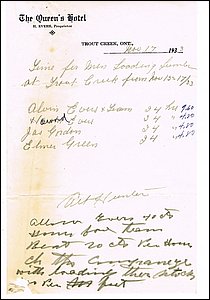 The Queen's Hotel
H. EVERS, Proprietor
TROUT CREEK, ONT., Nov 17 1933
Time for men Loading Lumber
at Trout Creek from Nov 13-17/33
Alvin Evers & Team 24 hrs 9.60
Evers 24 " 4.80
Jas Gordon 24 " 4.80
Elmer Green 24 " 4.80
Allow Evers 40 cts
Hour for team
Rest 20 cts Per Hour
with loading their stock
Per feet